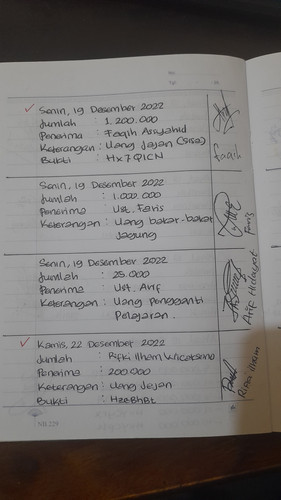 Senin, 19 Desember 2022
Jumlah : 1.200.000
Penerima : Faqih Assyahid
Keterangan : Uang Jajan (Sisa)
Bukti : Hx7QICN
Faqih
Senin, 19 Desember 2022
Jumlah : 1.000.000
Penerima : Ust. Faris
Keterangan : Uang bakar-bakar
Jagung
Faris
Senin, 19 Desember 2022
Jumlah : 25.000
Penerima : Ust. Arif
Keterangan : Uang Pengganti
Pelajaran.
Arif Hidayat
Kamis, 22 Desember 2022
Jumlah : Rifki Ilham Wicaksono
Penerima : 200.000
Keterangan : Uang Jajan
Bukti : HzeBhBt
Rifki Ilham
NB 229